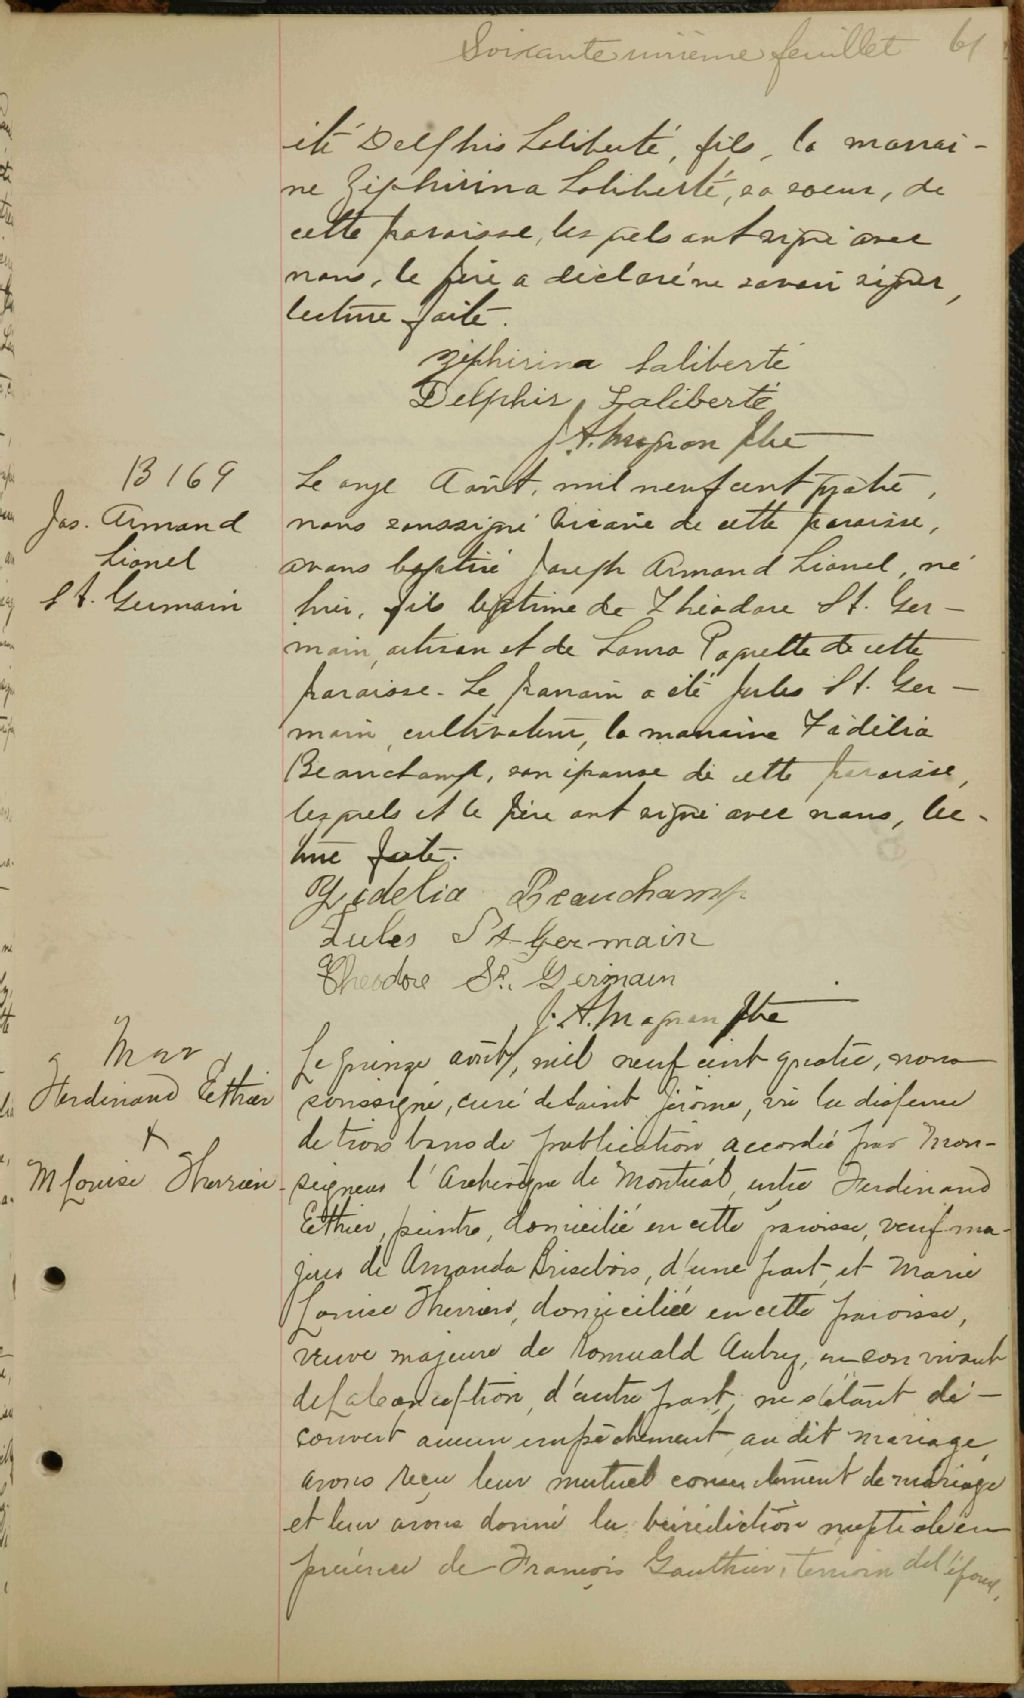 Soixante unième feuillet 61
été Delphis Laliberté, fils, la marrai-
ne Zéphirina Laliberté, sa soeur, de
cette paroisse, lesquels ont signé avec
nous, le père a déclaré ne savoir signer,
lecture faite.
Zéphirina Laliberté
Delphis Laliberté
J. A. Magnan Ptre
B 169
Jos. Armand
Lionel
St. Germain
Le onze Août, mil neuf cent quatre,
nous soussigné vicaire de cette paroisse,
avons baptisé Joseph Armand Lionel, né
hier, fils légitime de Théodore St. Ger-
main, artisan et de Laura Paquette de cette
paroisse. Le parrain a été Jules St. Ger-
main, cultivateur, la marraine Fidélia
Beauchamp, son épouse de cette paroisse,
lesquels et le père ont signé avec nous, lec-
ture faite.
Fidelia Beauchamp
Jules St-Germain
Theodore St. Germain
J. A. Magnan Ptre
Mar
Ferdinand Ethier
&
M Louise Therrien
Le quinze août, mil neuf cent quatre, nous
soussigné, curé de Saint Jérôme, vu la dispense
de trois bans de publication accordée par Mon-
seigneur l'Archevêque de Montréal, entre Ferdinand
Ethier, peintre, domicilié en cette paroisse, veuf ma-
jeur de Amanda Brisebois, d'une part, et Marie
Louise Therrien, domiciliée en cette paroisse,
veuve majeure de Romuald Aubry, en son vivant
de La Conception, d'autre part; ne s'étant dé-
couvert aucun empêchement au dit mariage,
avons reçu leur mutuel consentement de mariage
et leur avons donné la bénédiction nuptiale en
présence de François Gauthier, témoin de l'époux,